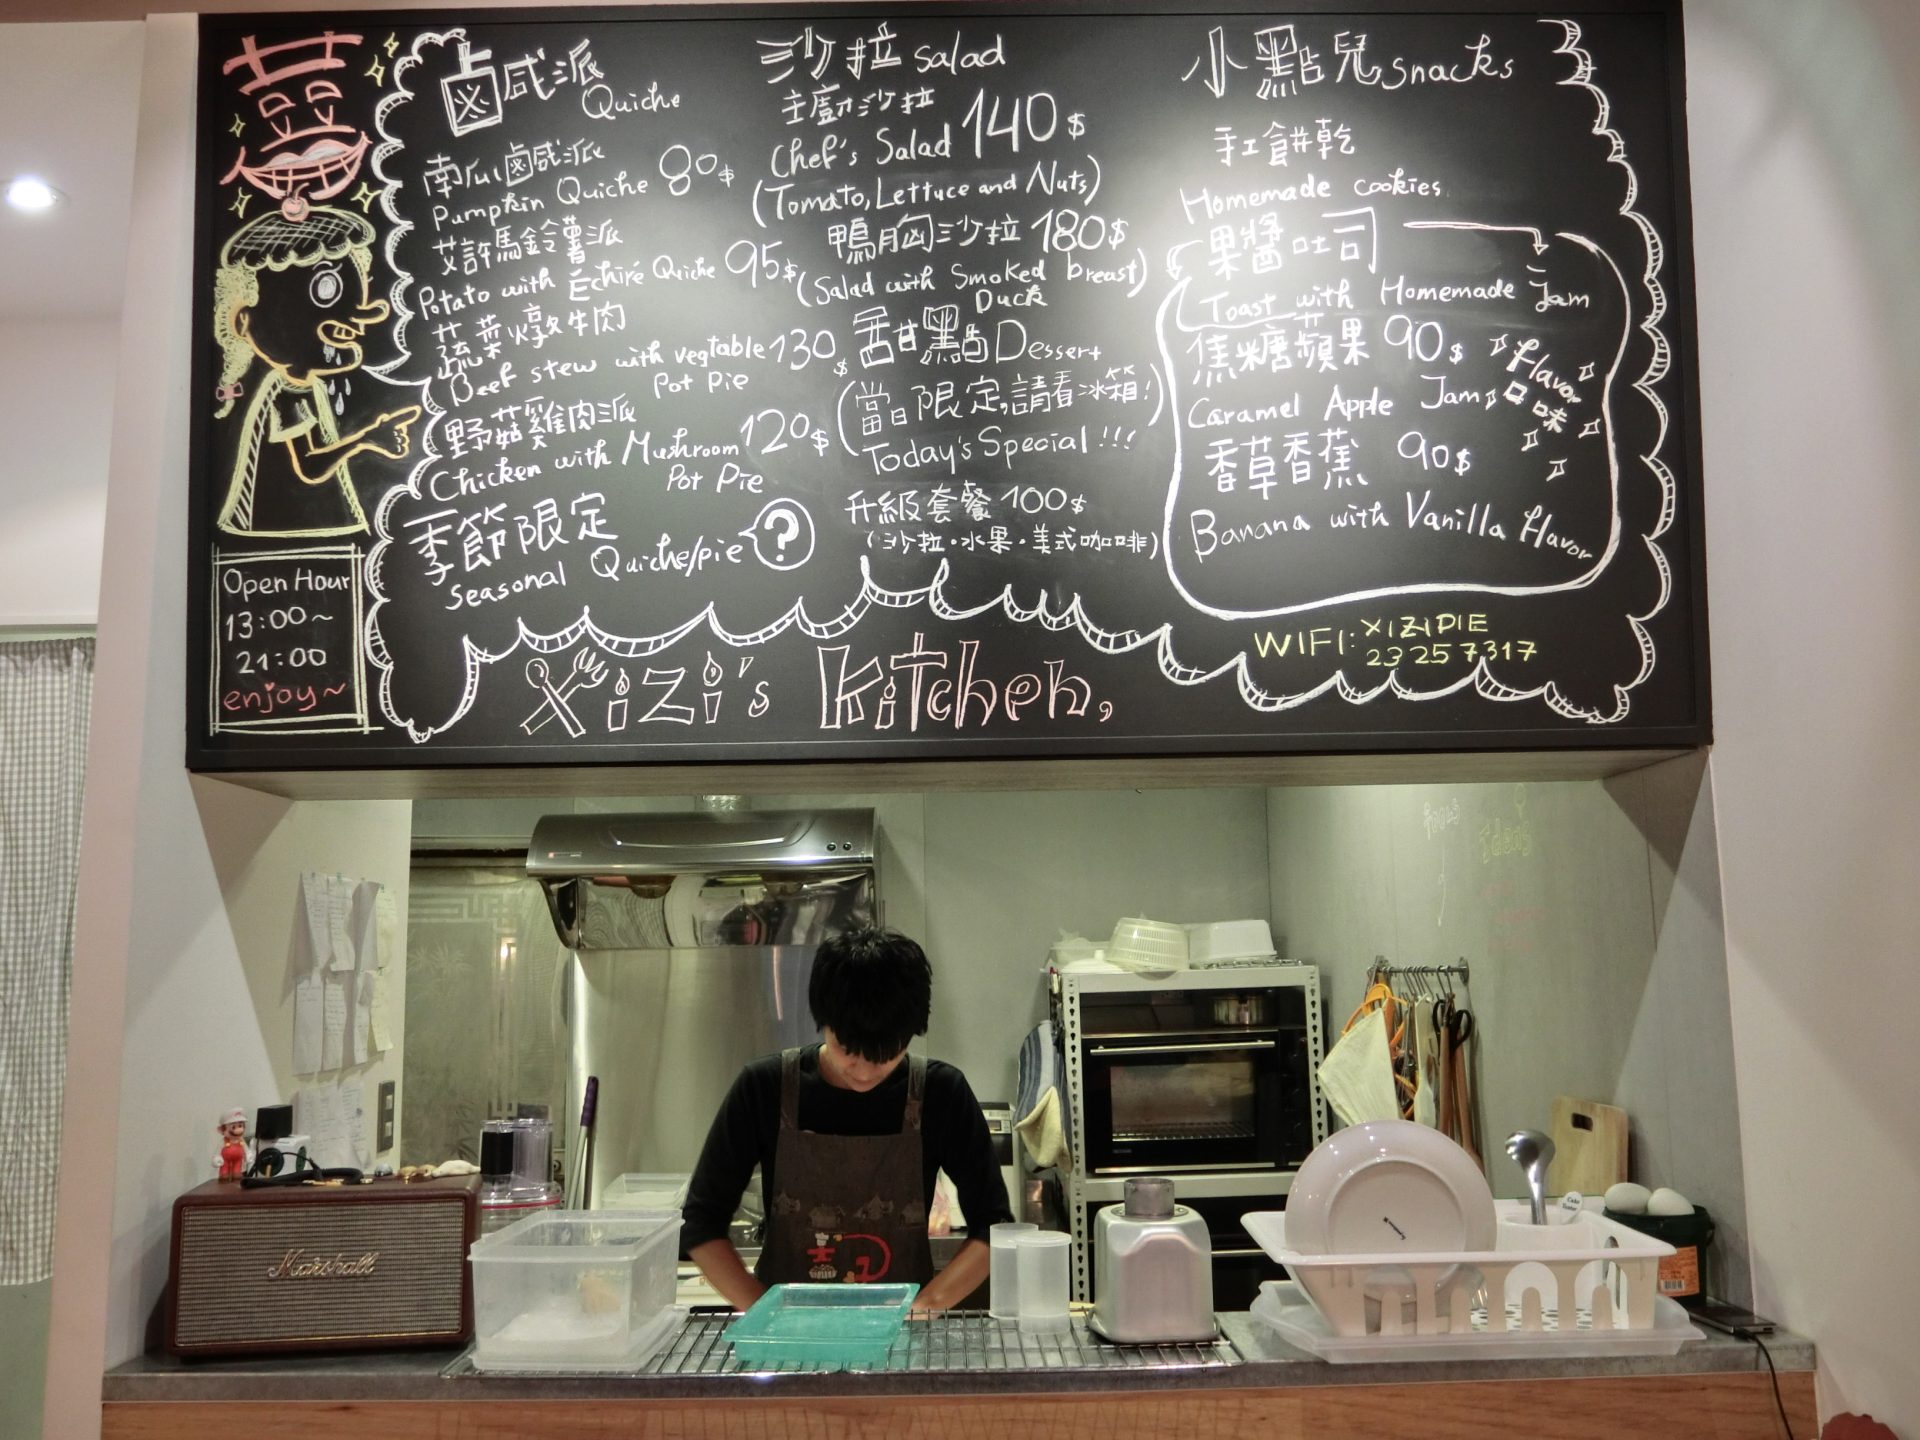 Open Hour
13:00~
21:00
enjoy~
鹵咸派
Quiche
南瓜鹵咸派
Pumpkin Quiche 80$
艾許馬鈴薯派
Potato with Échiré Quiche 95$
蔬菜燉牛肉
Beef stew with vegtable 130$
Pot Pie
野菇雞肉派
Chicken with Mushroom 120$
Pot Pie
季節限定
Seasonal Quiche/pie ?
沙拉 Salad
主廚沙拉
Chef's Salad 140$
(Tomato, Lettuce and Nuts)
鴨胸沙拉 180$
(Salad with Smoked breast)
Duck
甜點 Dessert
(當日限定,請看冰箱!)
Today's Special!!!
升級套餐 100$
(沙拉·水果·美式咖啡)
小點兒 Snacks
手工餅乾
Homemade cookies
果醬吐司
Toast with Homemade Jam
焦糖蘋果 90$
Caramel Apple Jam
Flavor
口味
香草香蕉 90$
Banana with Vanilla Flavor
WIFI: XIZIPIE
23257317
Xizi's kitchen,
Marshall